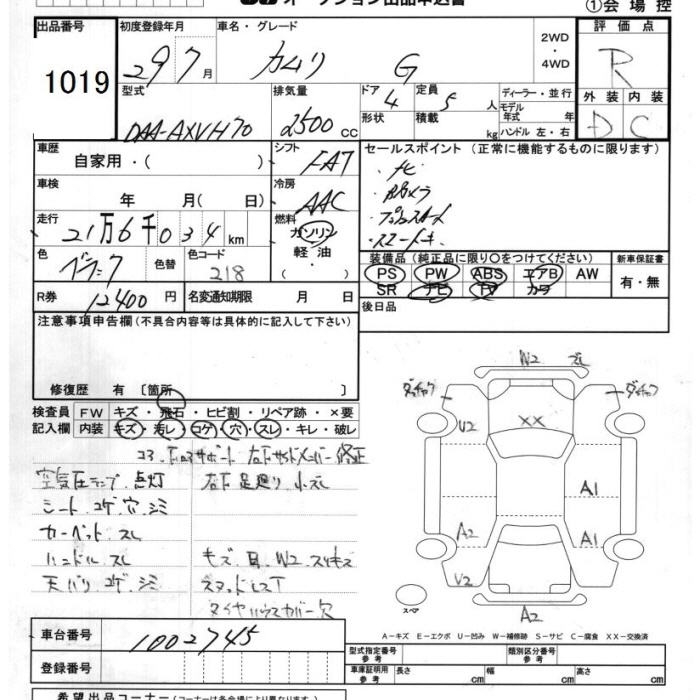 オークション出品申込書
①会場控
出品番号 初度登録年月 車名・グレード 2WD・4WD 評価点
1019 29 7月 カムリ G R
型式 排気量 ドア 定員 ディーラー・並行 外装 内装
DAA-AXVH70 2500cc 4 5人 モデル年式 年 D C
形状 積載 kg ハンドル 左・右
車歴 自家用・( ) シフト FAT セールスポイント (正常に機能するものに限ります)
・ナビ
車検 年 月( 日) 冷房 AAC
・Bカメラ
走行 21万6千034km 燃料 ガソリン・軽油・( )
・スマートキー
色 ブラック 色替 色コード 218 装備品 (純正品に限り○をつけてください) 新車保証書
PS PW ABS エアB AW 有・無
SR ナビ TV カワ
R券 12400円 名変通知期限 月 日 後日品
注意事項申告欄(不具合内容等は具体的に記入して下さい)
修復歴 有 [箇所 ]
検査員記入欄 FW キズ・飛石・ヒビ割・リペア跡・×要
内装 キズ・汚レ・コゲ・穴・スレ・キレ・破レ
コアロアサポート 右下サイドメンバー修正
空気圧ランプ点灯 右下足廻り小ズレ
シート コゲ 穴 シミ
カーペット スレ
ハンドル スレ キズ 凹 W2 スリキズ
天バリ コゲ シミ スタッドレスT
タイヤハウスカバー欠
W2 ズレ
U2 XX
A1
A2 A1
U2
スペア A2
A−キズ E−エクボ U−凹み W−補修跡 S−サビ C−腐食 XX−交換済
車台番号 1002745
型式指定番号 参考 類別区分番号 参考
登録番号 車庫証明用 参考 長さ cm 幅 cm 高さ cm
希望出品コーナー (コーナーは各会場により異なります。)